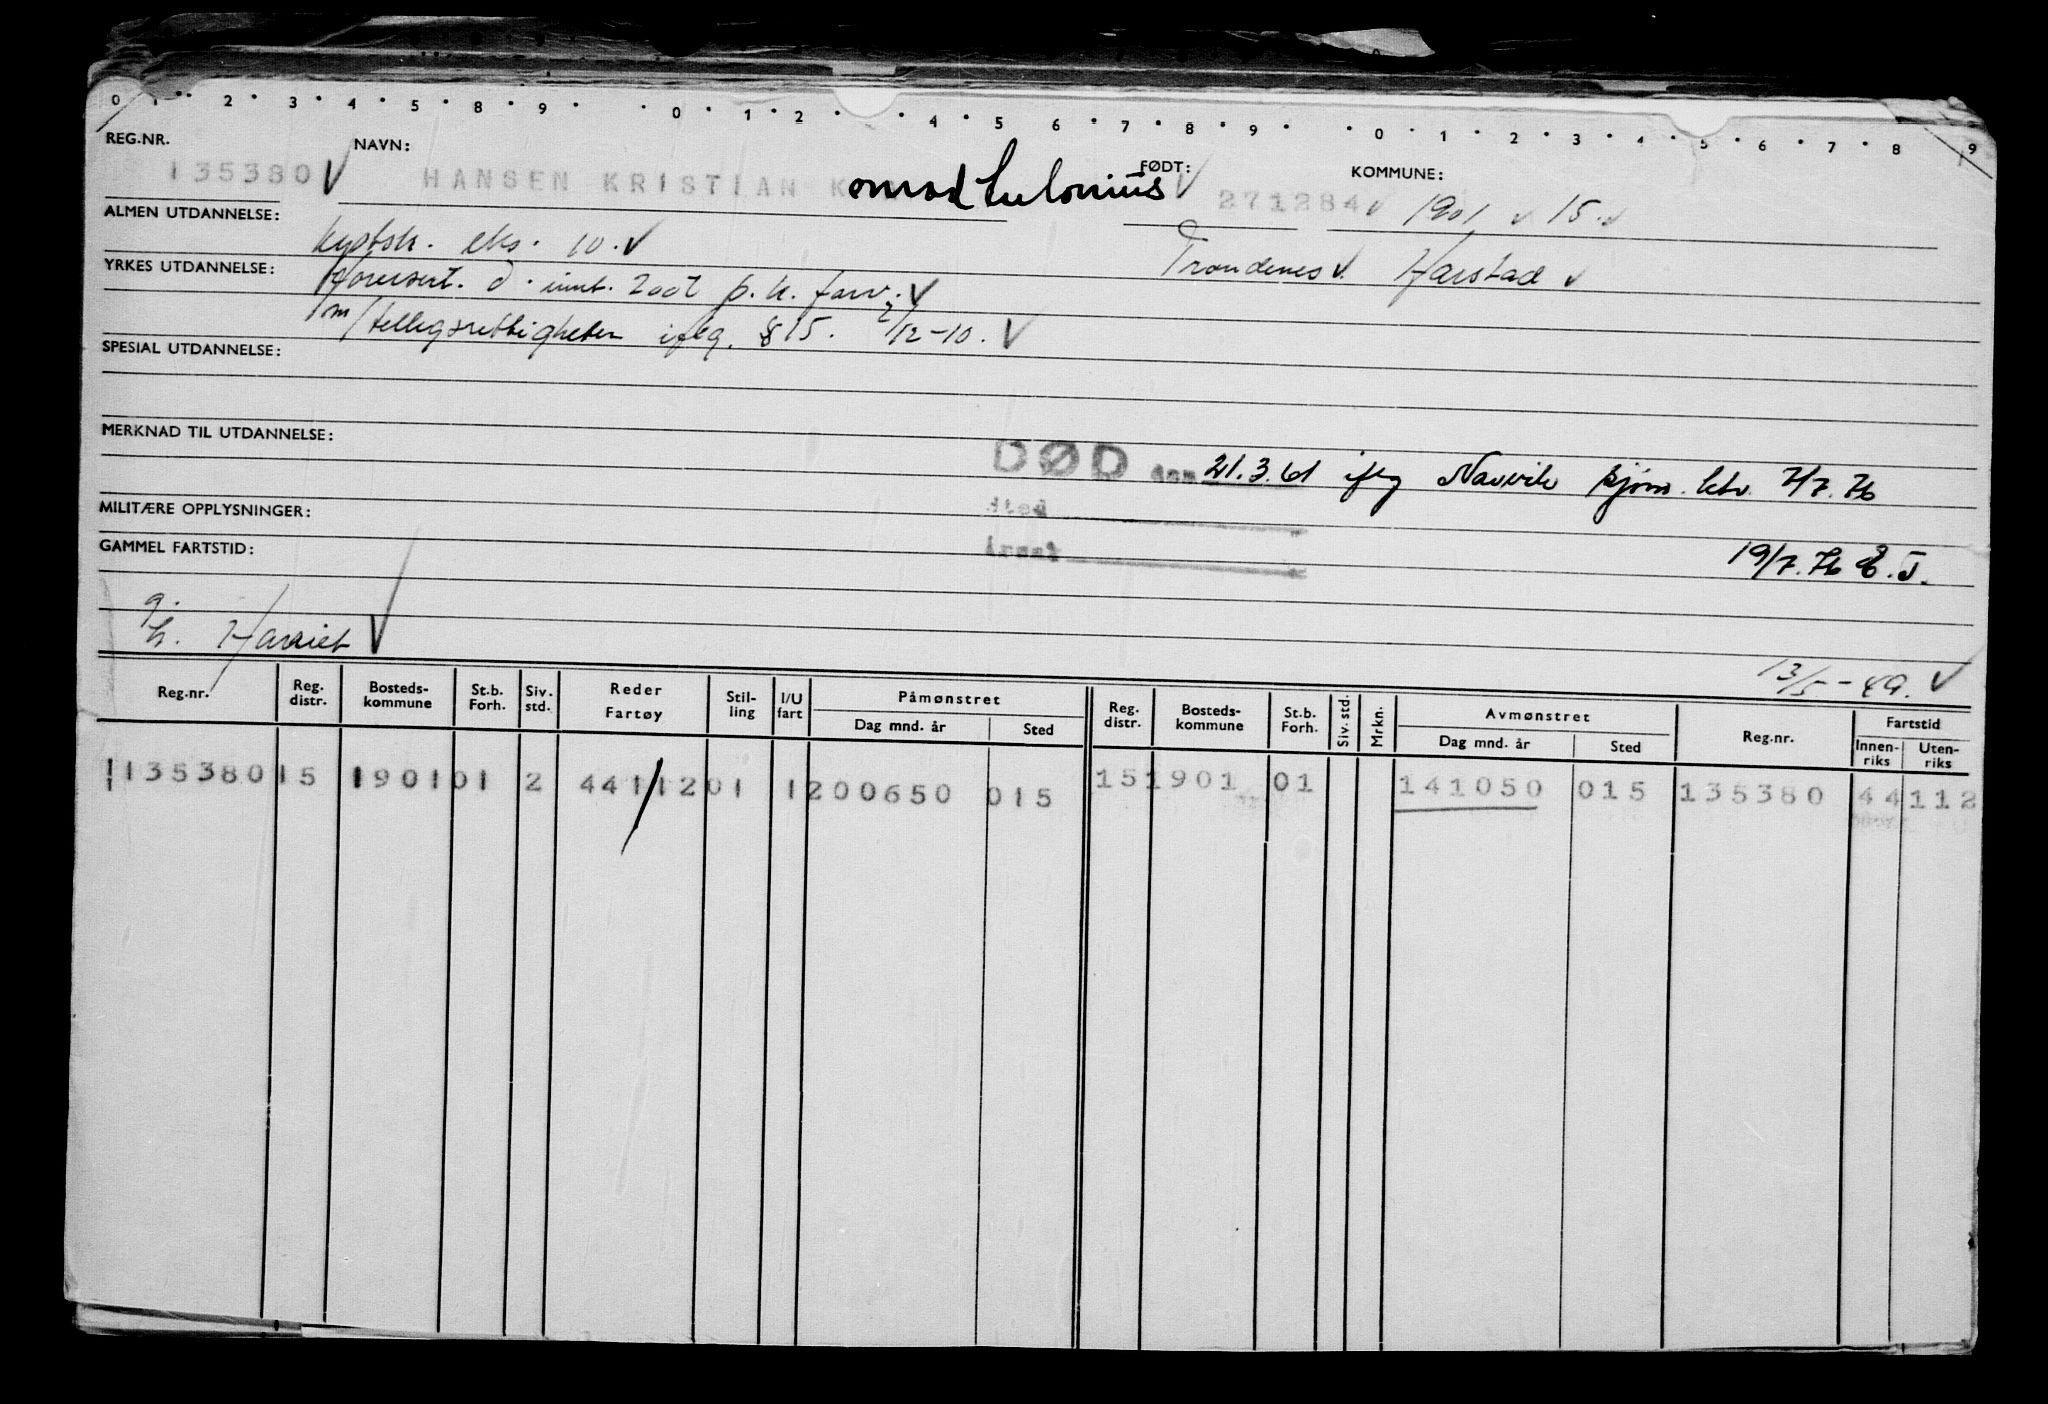 0 1 2 3 4 5 6 7 8 9 0 1 2 4 5 6 7 8 9 0 1 2 3 4 5 6 7 8 9
REG.NR. NAVN: FØDT: KOMMUNE:
135380 HANSEN KRISTIAN K 271284 1901 15.
ALMEN UTDANNELSE: kystsk. eks. 10. Trondenes Harstad
YRKES UTDANNELSE: d. innt. 200t p. k. farv.
m/tilleggsrettigheter iflg. §15. 2/12-10.
SPESIAL UTDANNELSE:
MERKNAD TIL UTDANNELSE:
DØD den 21.3.61 iflg Narvik sjøm. ktr. 7/7.76
sted
MILITÆRE OPPLYSNINGER:
årsak
GAMMEL FARTSTID: 19/7.76 E.J.
g.
h. Harriet
13/5-49.
Reg.nr. Reg. distr. Bosteds-kommune St.b. Forh. Siv. std. Reder Fartøy Stil-ling I/U fart Påmønstret Dag mnd. år Sted Reg. distr. Bosteds-kommune St.b. Forh. Siv. std. Mrkn. Avmønstret Dag mnd. år Sted Reg.nr. Fartstid Innen-riks Uten-riks
135380 15 1901 01 2 44112 01 1 200650 015 15 1901 01 141050 015 135380 44112